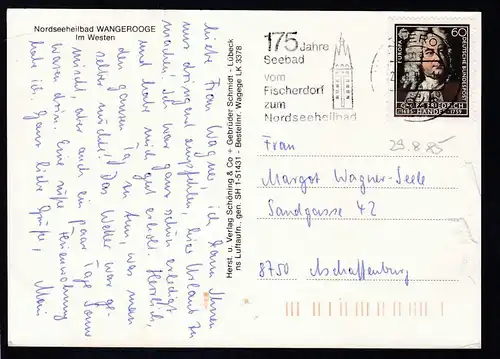 Nordseeheilbad WANGEROOGE
Im Westen
Liebe Frau Wagner, ich kann Ihnen
nur dringend empfehlen, hier Urlaub zu
machen! Ich war ganz schön erledigt
und habe mich gut erholt. Herrlich,
den ganzen Tag zu tun, was man
selber möchte! Das Wetter war ge-
mischt, aber auch ein paar Tage Sonne
waren drin. Eine süße Ferienwohnung
habe ich. Ganz liebe Grüße,
Herst. u. Verlag Schöning & Co + Gebrüder Schmidt · Lübeck
ns Luftaufn. gen. SH 1-51431 - Bestellnr. Wagege LK 3378
175 Jahre
Seebad
vom
Fischerdorf
zum
Nordseeheilbad
EUROPA
60
DEUTSCHE BUNDESPOST
GEORG FRIEDRICH
1685 HÄNDEL 1759
29.8.85
Frau
Margot Wagner-Seele
Sandgasse 42
8750 Aschaffenburg